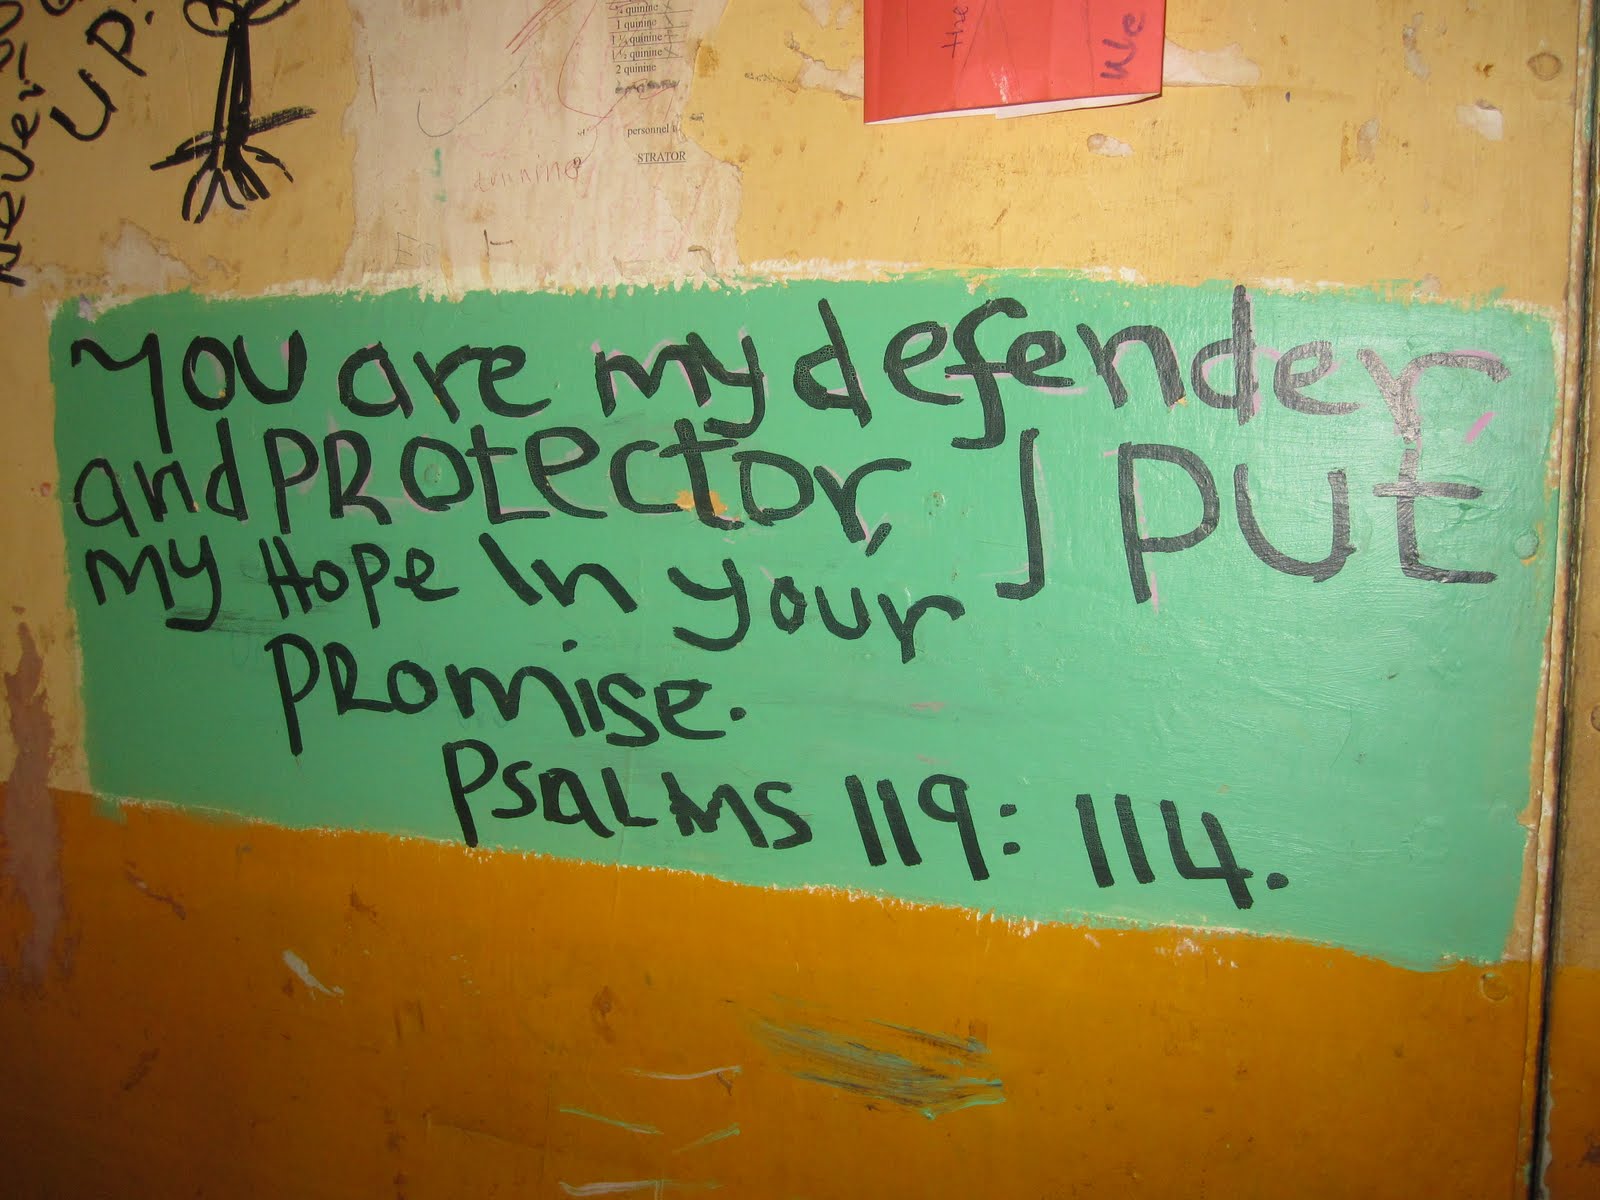 Never
UP!
¼ quinine
1 quinine
1 ¼ quinine
1 ½ quinine
2 quinine
personnel
STRATOR
the
We
You are my defender
and PRotector, I put
my Hope In your
PRomise.
PsaLms 119: 114.